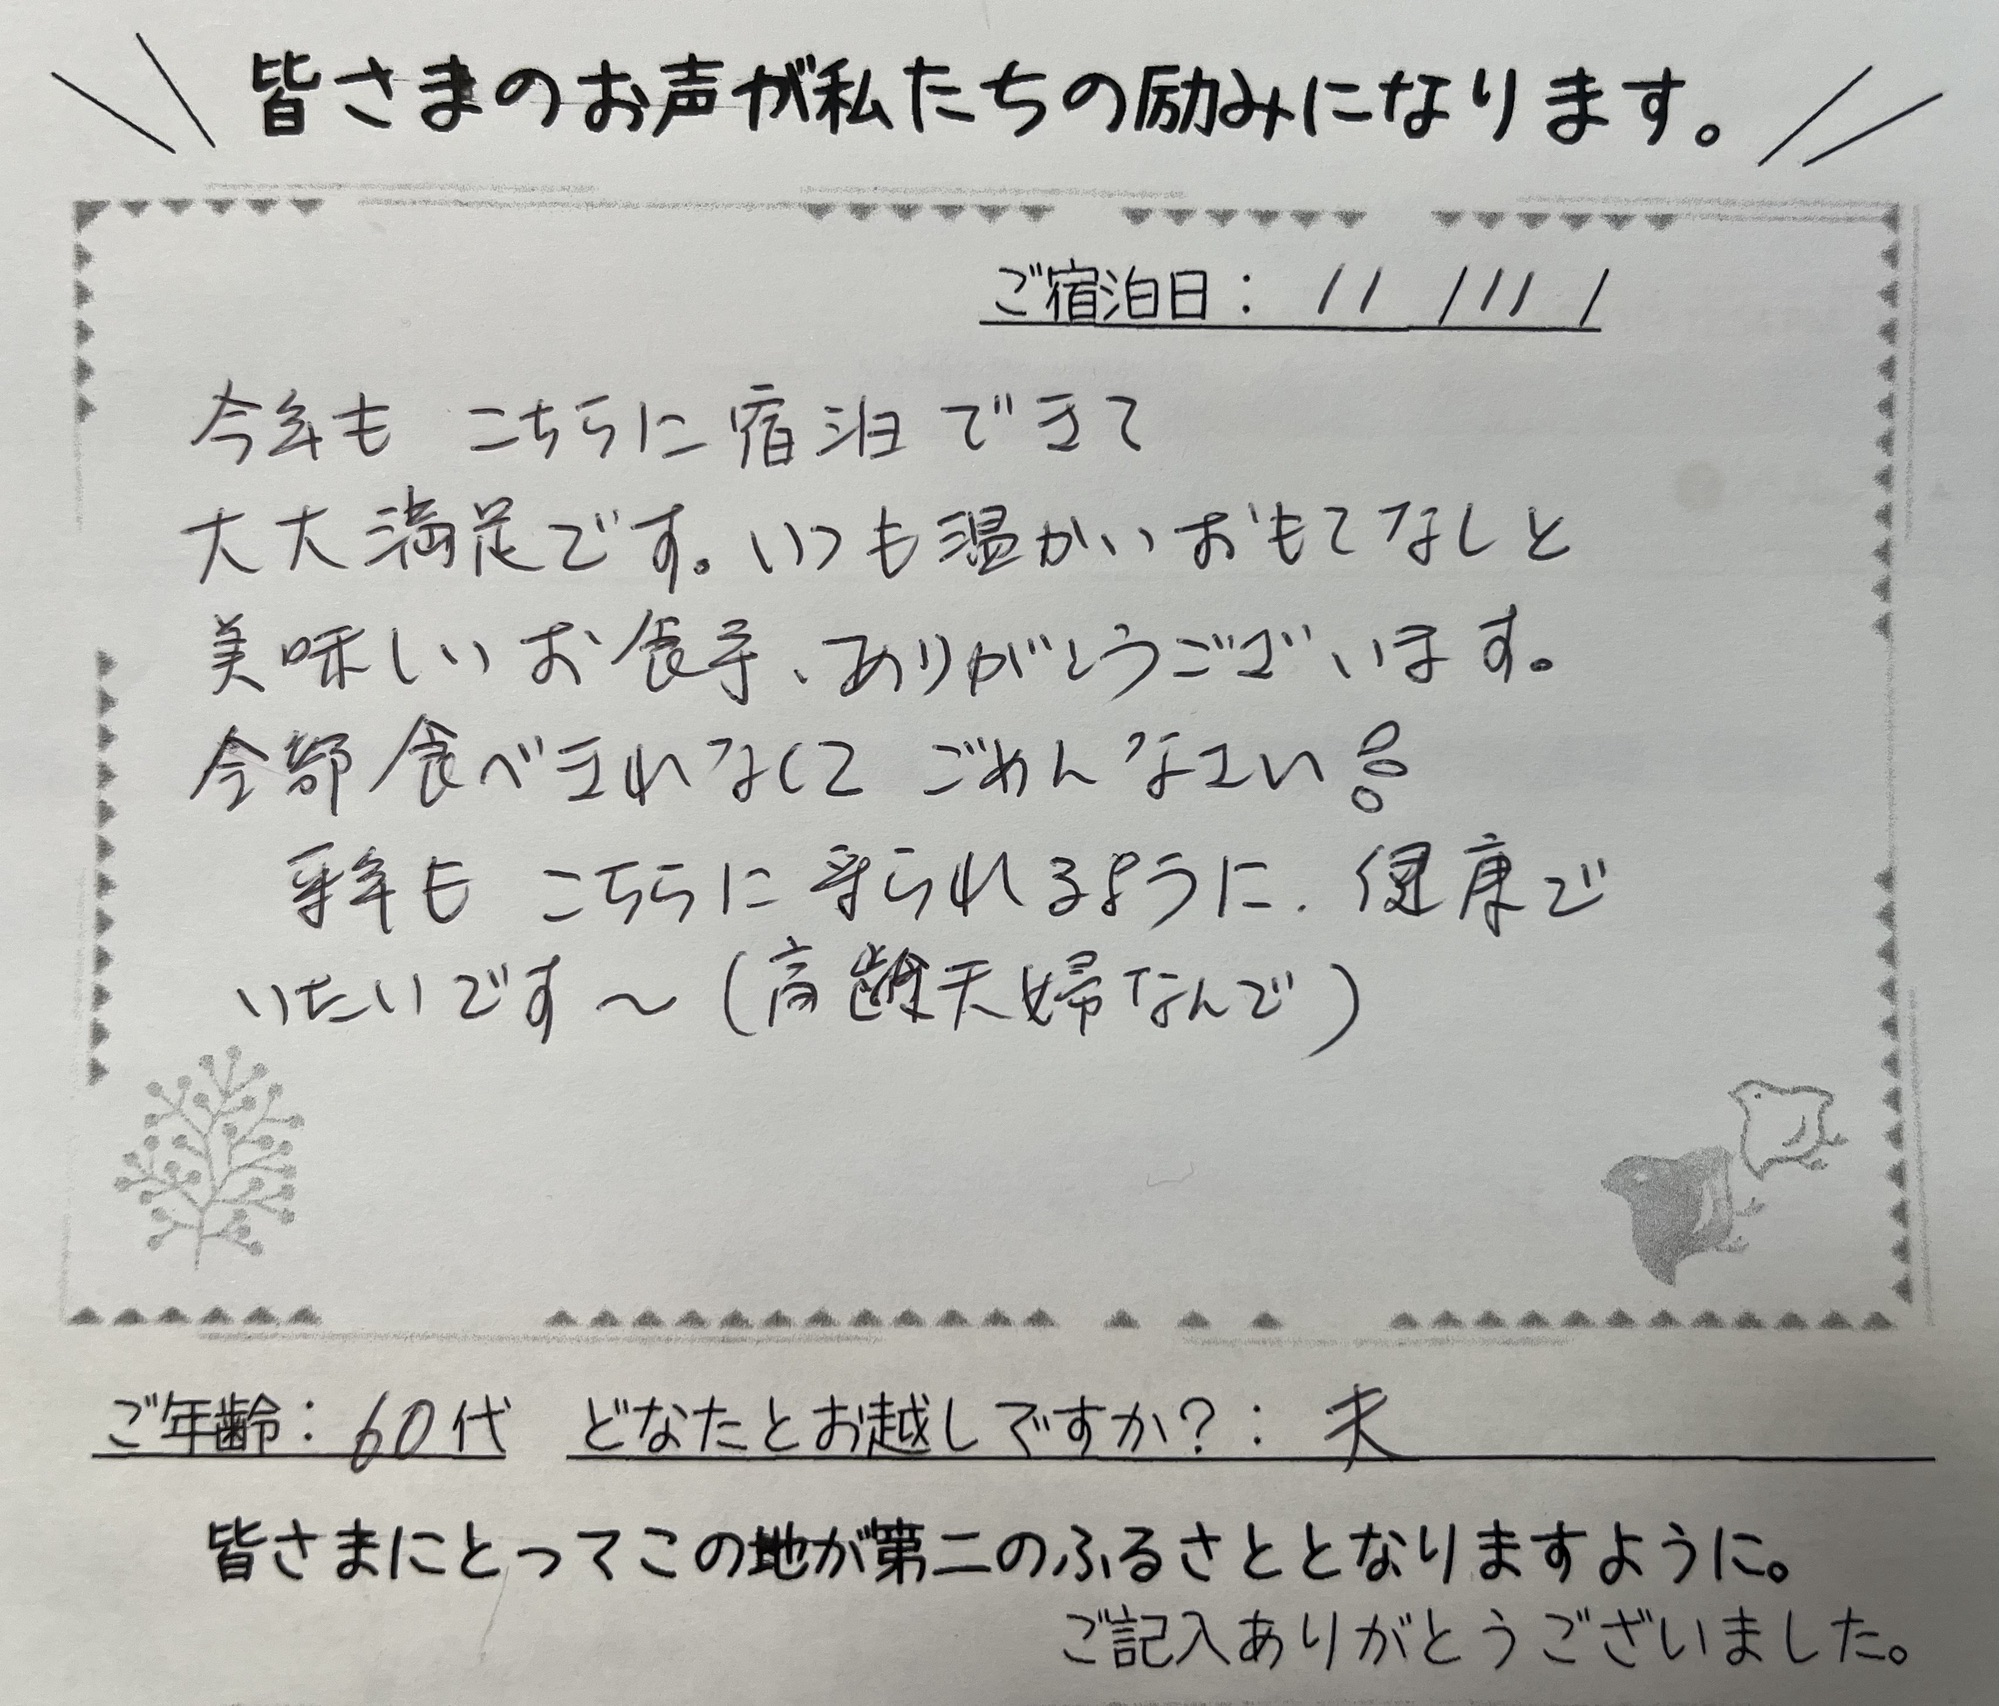 皆さまのお声が私たちの励みになります。
ご宿泊日： 11 / 11 /
今年も こちらに宿泊できて
大大満足です。いつも温かいおもてなしと
美味しいお食事、ありがとうございます。
全部食べきれなくて ごめんなさい
来年も こちらに来られるように、健康で
いたいです〜（高齢夫婦なんで）
ご年齢： 60代 どなたとお越しですか？： 夫
皆さまにとってこの地が第二のふるさととなりますように。
ご記入ありがとうございました。